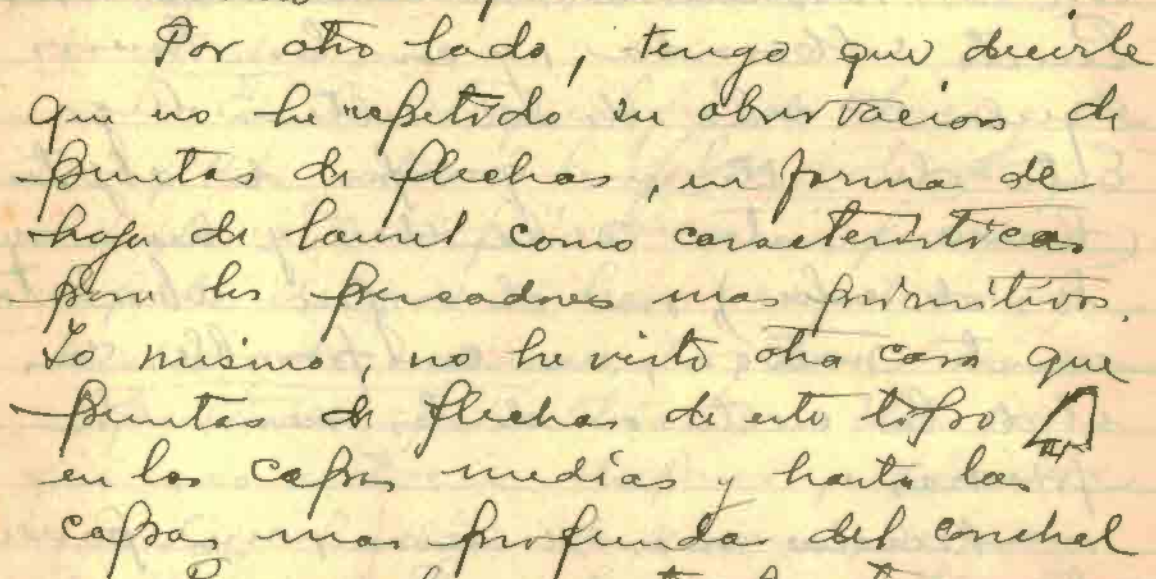 Por otro lado, tengo que decirle
que no he repetido su observacion de
puntas de flechas, en forma de
hoja de laurel como caracteristicas
para los pescadores mas primitivos.
Lo mismo, no he visto otra cosa que
puntas de flechas de este tipo
en las capas medias y hasta las
capas mas profundas del conchal